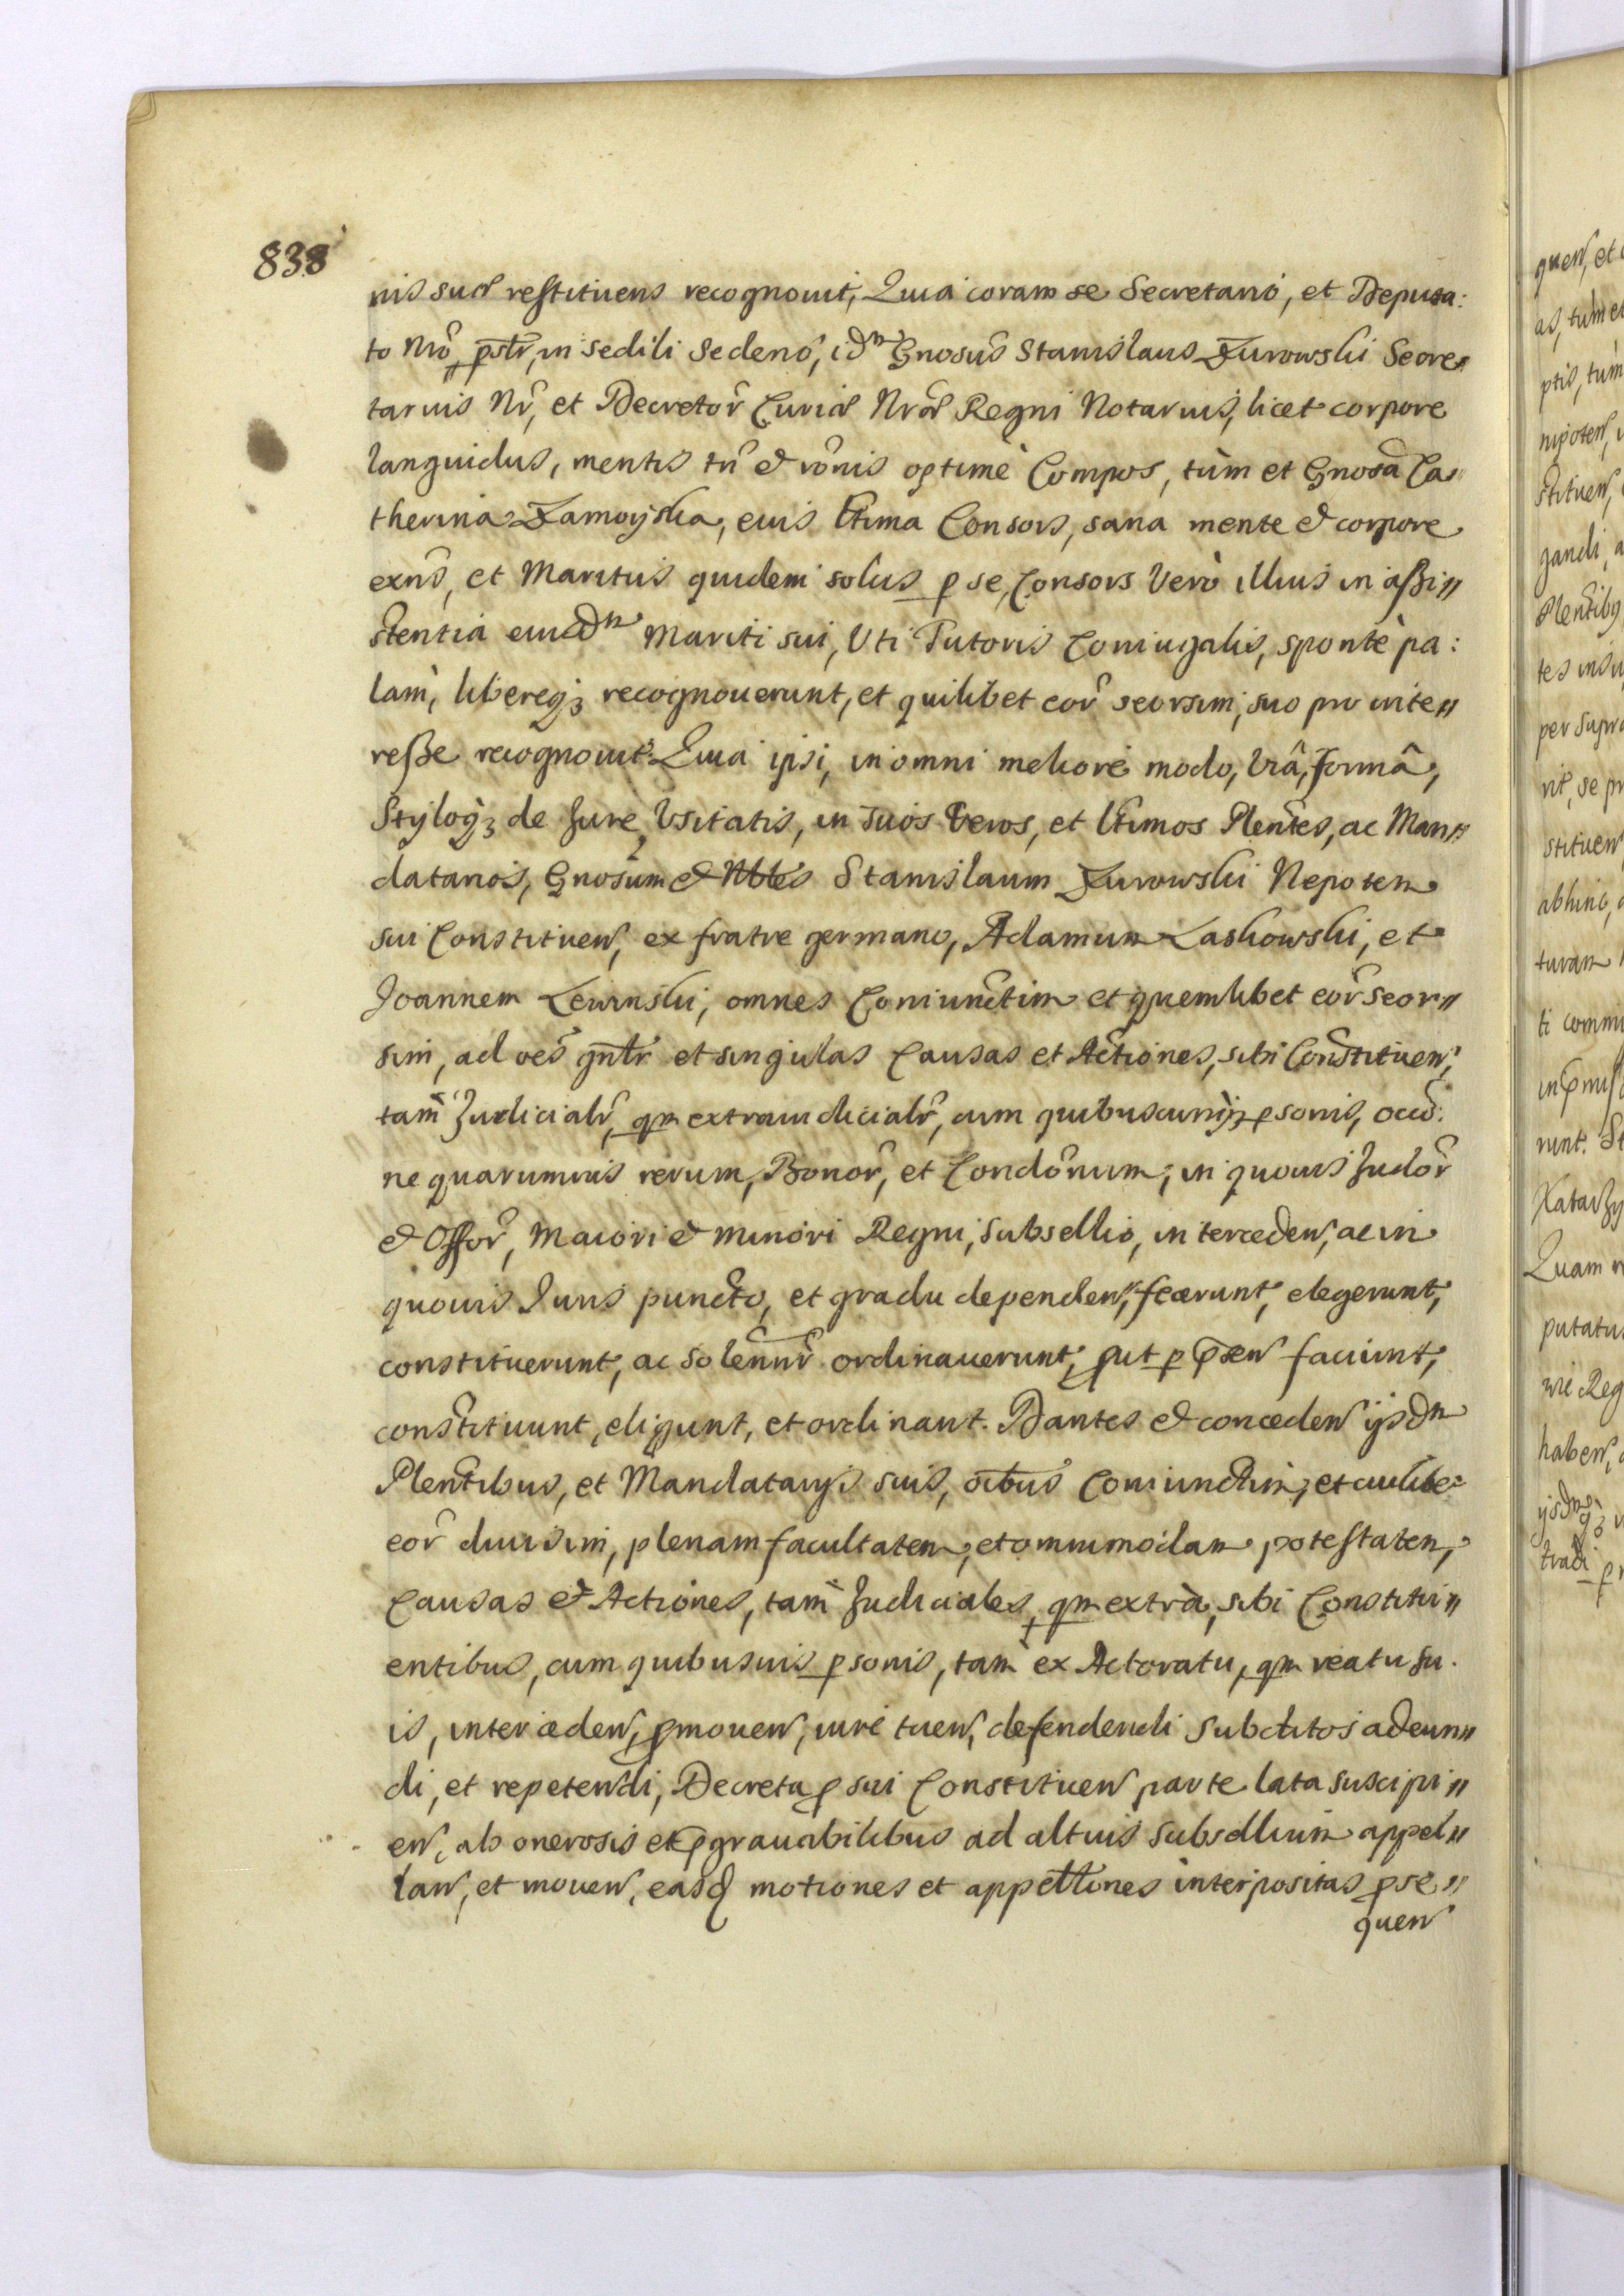 838
nis suæ restituens recognouit, Quia coram se Secretario, et Deputa:
to Nrō, pstr, in sedili Sedens, idm Gnosus Stanislaus Żurowski Secre
tarius Nr̄, et Decretor̄ Curiæ Nræ Regni Notarius, licet corpore
languidus, mentis tn̄ & rōnis optimè Compos, tùm et Gnosa Ca
therina Zamoyska, eius ltima Consors, sana mente & corpore
exns, et Maritus quidem solus p se, Consors Verò illius in aßi
stentia eiusdm Mariti sui, Uti Tutoris Coniugalis, spontè pa:
lam, libereqȝ recognouerunt, et quilibet eor̄ seorsim, suo pro inte
reße recognouit. Quia ipsi, in omni meliore modo, Viâ, formâ,
Styloqȝ de Jure Usitatis, in suos Veros, et ltimos Plentes, ac Man
datarios, Gnosum & Nbles Stanislaum Żurowski Nepotem
sui Constituen, ex fratre germano, Adamum Laskowski, et
Joannem Lewinski, omnes Coniunctim et quemlibet eor̄ seor
sim, ad oēs gntr et singulas Causas et Actiones, sibi Constituen,
tam Judicialr̄, qm extraiudicialr̄, cum quibuscunqȝ psonis, occō:
ne quarumuis rerum, Bonor̄, et Condōnum, in quouis Judōr̄
& Offor̄, Maiori & minori Regni, Subsellio, interceden, ac in
quouis Juris puncto, et gradu dependen, fecerunt, elegerunt,
constituerunt, ac solennr̄ ordinauerunt, put p pñen faciunt,
constituunt, eligunt, et ordinant. Dantes & conceden ijsdm
Plentibus, et Mandatarijs suis, oibus Coniunctim, et cuilibe:
eor̄ diuisim, plenam facultatem, et omnimodam potestatem,
Causas & Actiones, tam Judiciales, qm extrà, sibi Constitu
entibus, cum quibusuis psonis, tam ex Actoratu, qm reatu su.
is, interceden, pmouen, iure tuen, defendendi Subditos adeun
di, et repetendi, Decreta p sui Constituen parte lata suscipi
en, ab onerosis et pgrauabilibus ad altius Subsellium appel
lan, et mouen, easq motiones et appellones interpositas pse
quen